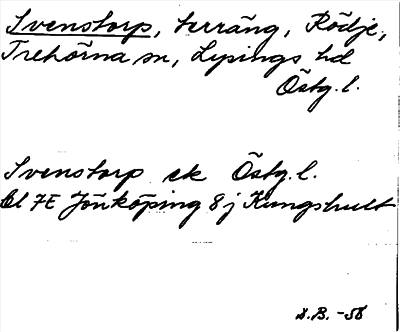 Svenstorp, terräng, Rödje,
Trehörna sn, Lysings hd
Östg. l.
Svenstorp ek Östg. l.
Bl 7E Jönköping 8j Kungshult
D.B. -58